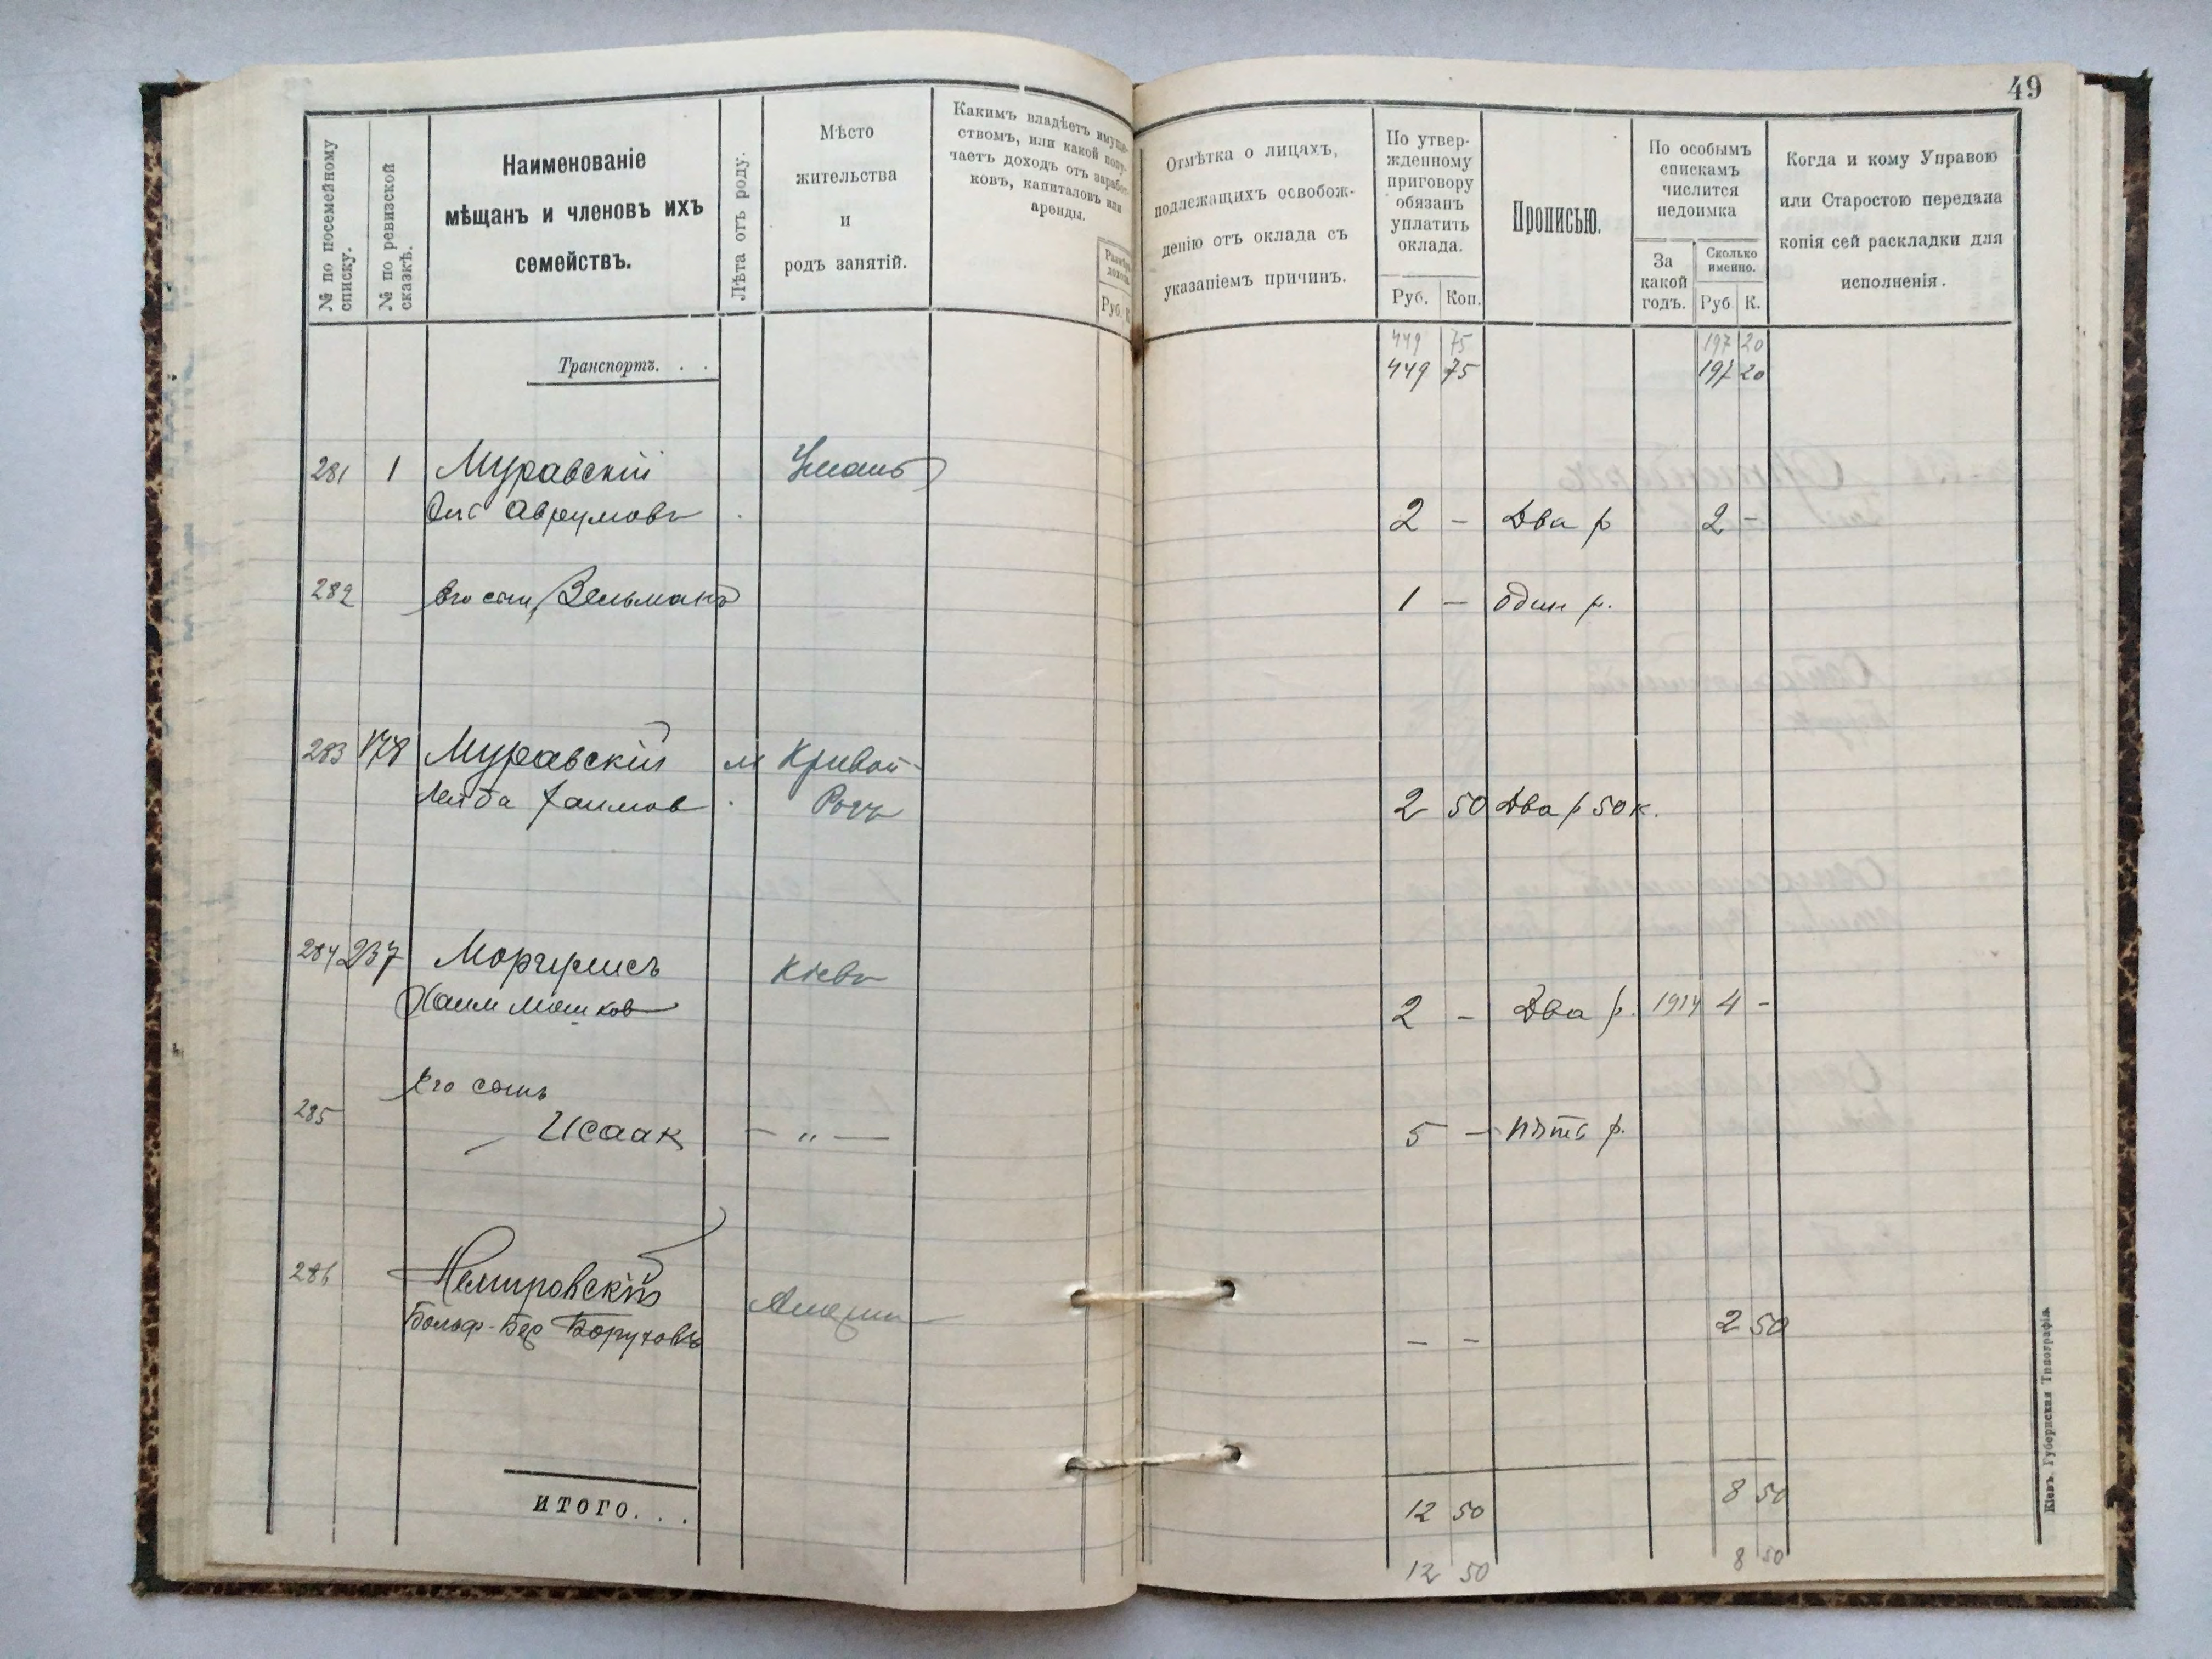 49
№ по посемейному списку.
№ по ревизской сказкѣ.
Наименованіе
мѣщанъ и членовъ ихъ
семействъ.
Лѣта отъ роду.
Мѣсто
жительства
и
родъ занятій.
Какимъ владѣетъ имуще-
ствомъ, или какой полу-
чаетъ доходъ отъ заработ-
ковъ, капиталовъ или
аренды.
Руб.
Отмѣтка о лицахъ,
подлежащихъ освобож-
денію отъ оклада съ
указаніемъ причин.
По утвер-
жденному
приговору
обязан
уплатить
оклада.
Руб. Коп.
Прописью.
По особымъ
спискамъ
числится
недоимка
За
какой
годъ.
Сколько
именно.
Руб К.
Когда и кому Управою
или Старостою передана
копія сей раскладки для
исполненія.
449 75 197 20
Транспортъ. . . 449 75 197 20
281 1 Муравскій Умань
Аврумовъ 2 - Два р 2 -
282 его сын Зельманъ 1 — один р.
283 178 Муравскій м Кривой-
Лейба Хаимов Рогъ 2 50 Два р 50 к.
284 237 Моргулисъ Кіевъ
Хаим Мошков 2 - Два р. 1914 4 -
Его сынъ
285 Исаак — „ — 5 — пять р.
286 Немировскій
Вольф-Бер Боруховъ - - 2 50
ИТОГО. . . 12 50 8 50
12 50 8 50
Кіевъ. Губернская Типографія.